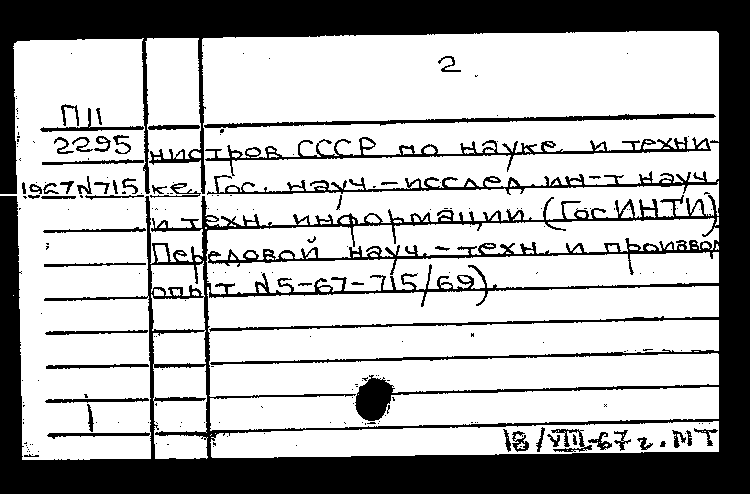 2
П11
2295 нистров СССР по науке и техни-
1967 N 715 ке. Гос. науч.-исслед. ин-т науч.
и техн. информации. (ГосИНТИ)
Передовой науч.-техн. и произвол
опыт N 5-67-715/69).
18/VIII-67 г. МТ